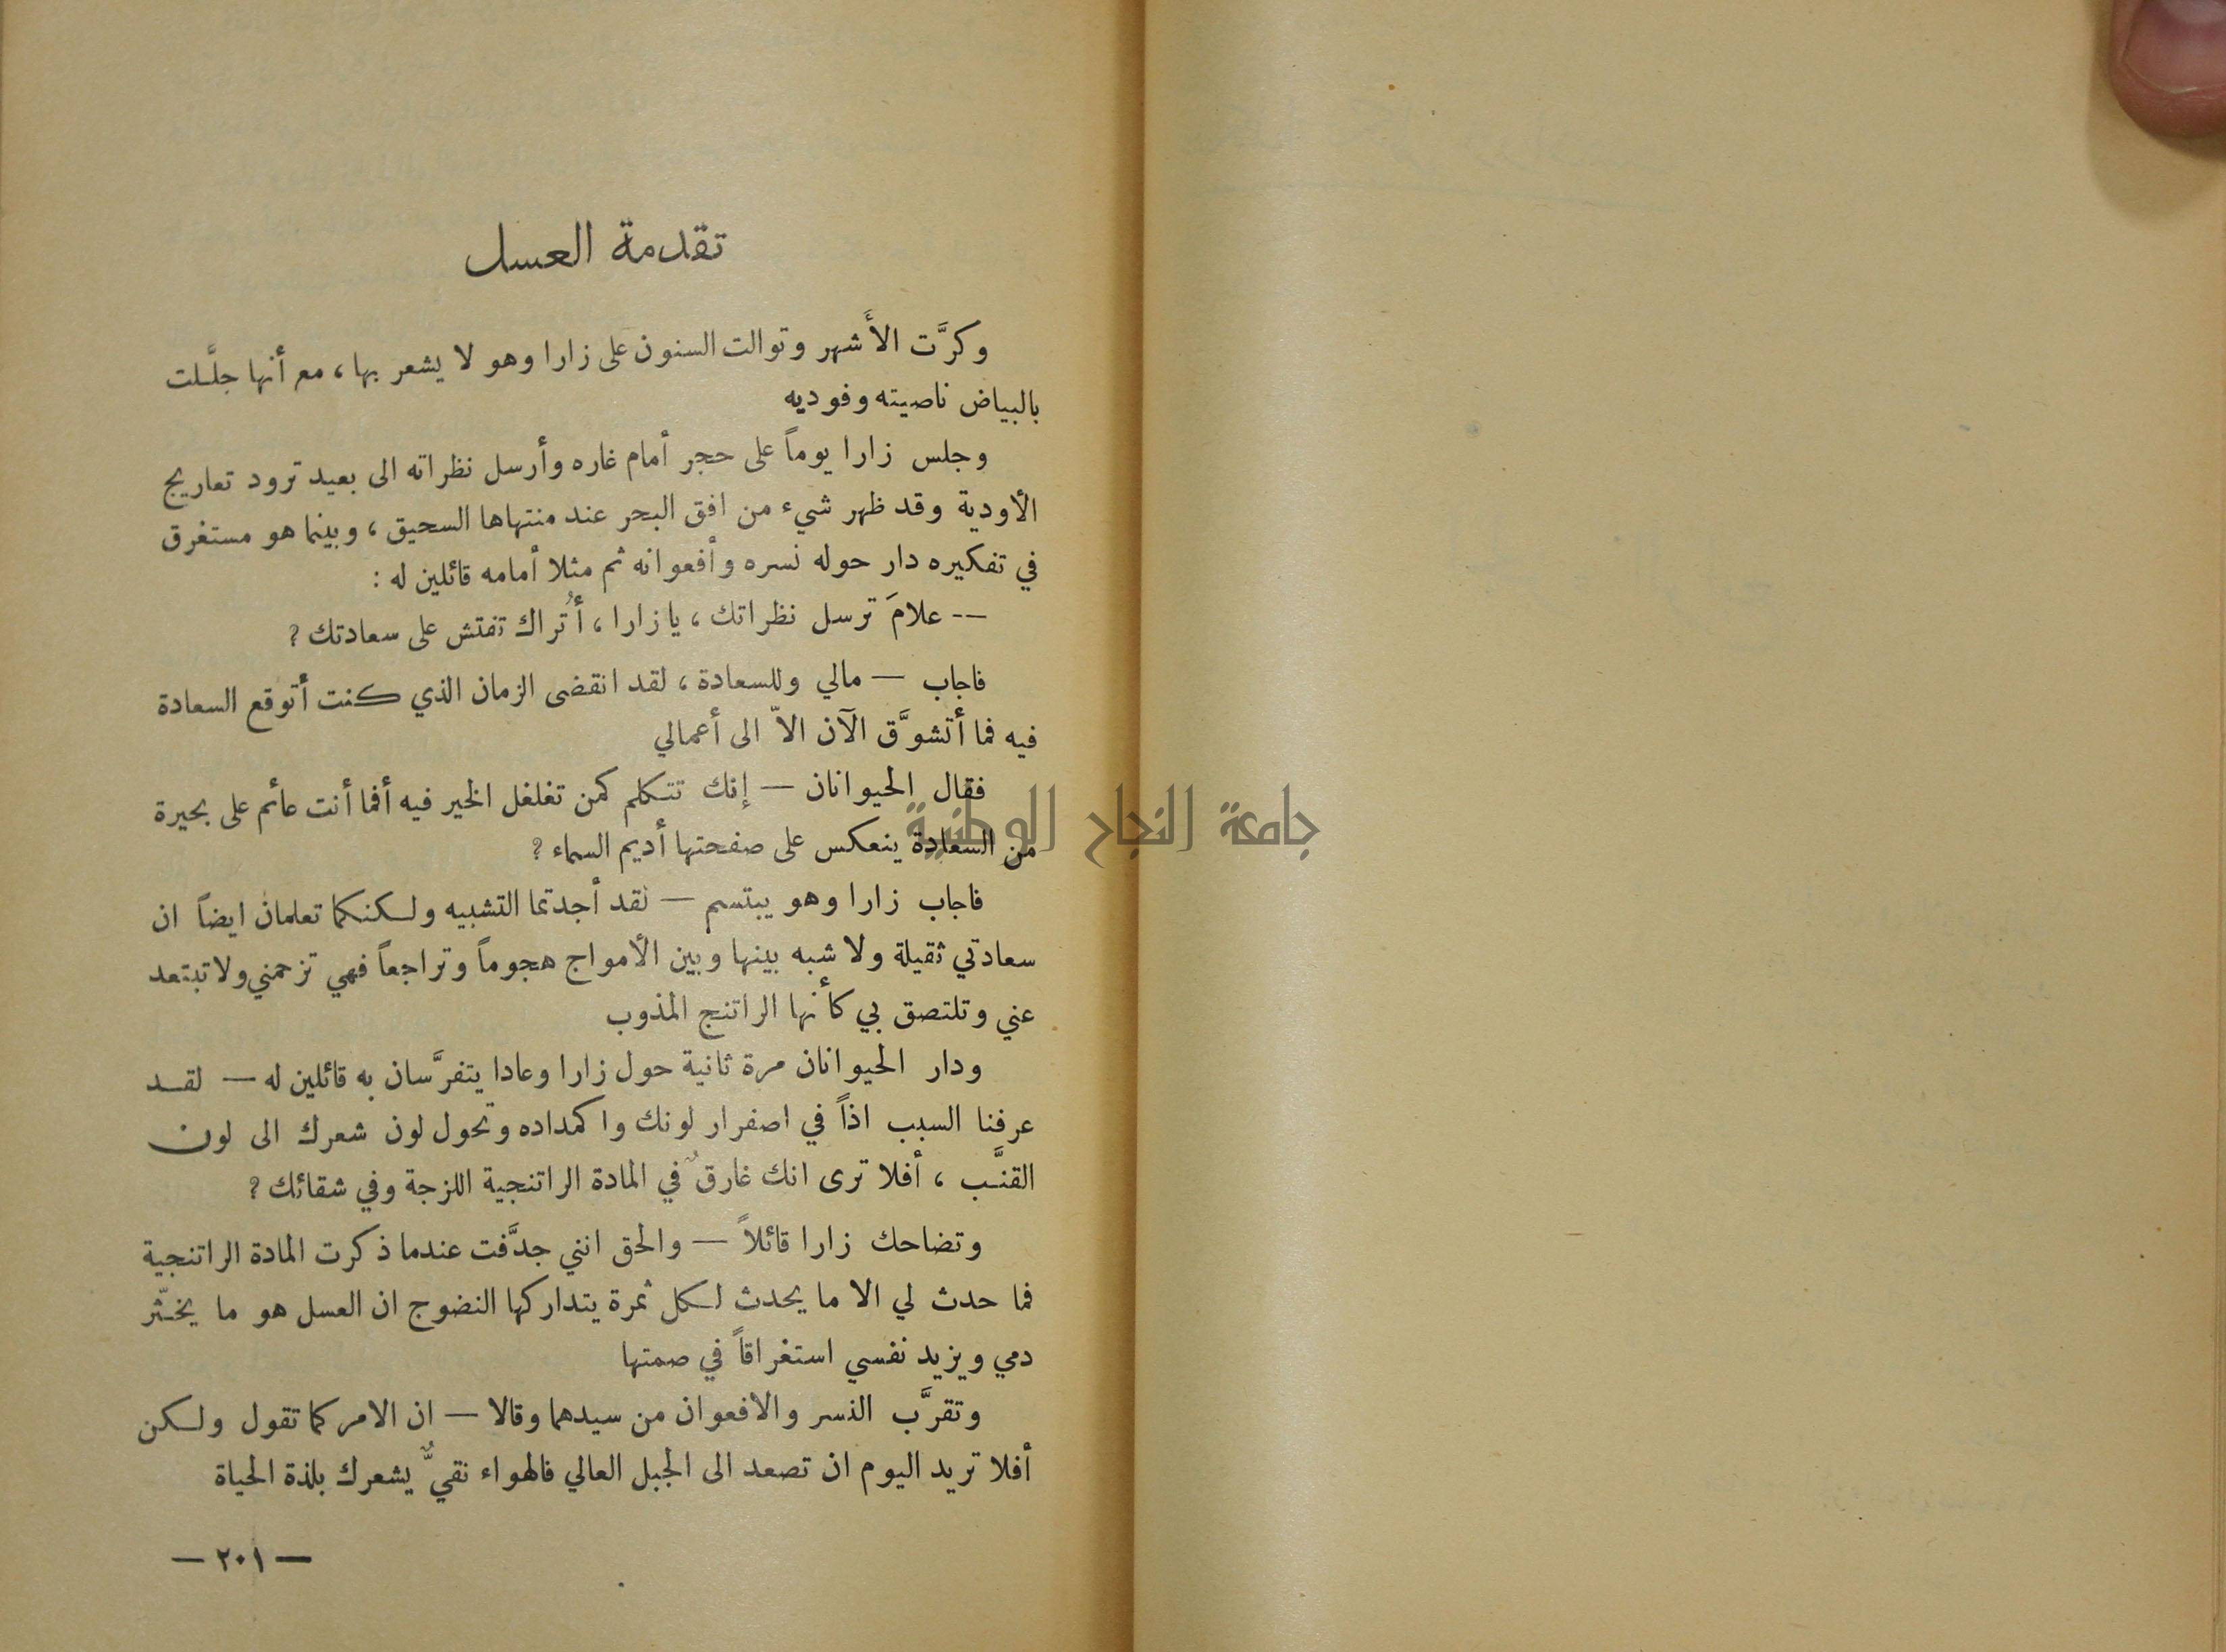 تقدمة العسل
وكرَّت الأَشهر وتوالت السنون على زارا وهو لا يشعر بها ، مع أنها جلَّلت
بالبياض ناصيته وفوديه
وجلس زارا يوماً على حجر أمام غاره وأرسل نظراته الى بعيد ترود تعاريج
الأودية وقد ظهر شيء من افق البحر عند منتهاها السحيق ، وبينما هو مستغرق
في تفكيره دار حوله نسره وأفعوانه ثم مثلا أمامه قائلين له :
-- علامَ ترسل نظراتك ، يا زارا ، أُتراك تفتش على سعادتك ؟
فاجاب — مالي وللسعادة ، لقد انقضى الزمان الذي كنت أتوقع السعادة
فيه فما أتشوَّق الآن الاّ الى أعمالي
فقال الحيوانان — إنك تتكلم كمن تغلغل الخير فيه أفما أنت عائم على بحيرة
من السعادة ينعكس على صفحتها أديم السماء ؟
جامعة النجاح الوطنية
فاجاب زارا وهو يبتسم — لقد أجدتما التشبيه ولكنكما تعلمان ايضاً ان
سعادتي ثقيلة ولا شبه بينها وبين الأمواج هجوماً وتراجعاً فهي تزحمني ولا تبتعد
عني وتلتصق بي كأنها الراتنج المذوب
ودار الحيوانان مرة ثانية حول زارا وعادا يتفرَّسان به قائلين له — لقد
عرفنا السبب اذاً في اصفرار لونك واكمداده وتحول لون شعرك الى لون
القنَّب ، أفلا ترى انك غارقٌ في المادة الراتنجية اللزجة وفي شقائك ؟
وتضاحك زارا قائلاً — والحق انني جدَّفت عندما ذكرت المادة الراتنجية
فما حدث لي الا ما يحدث لكل ثمرة يتداركها النضوج ان العسل هو ما يخثّر
دمي ويزيد نفسي استغراقاً في صمتها
وتقرَّب النسر والافعوان من سيدهما وقالا — ان الامر كما تقول ولكن
أفلا تريد اليوم ان تصعد الى الجبل العالي فالهواء نقيٌّ يشعرك بلذة الحياة
— ٢٠١ —